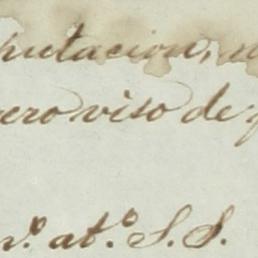 putacion,
ero viso de
at.º S. S.